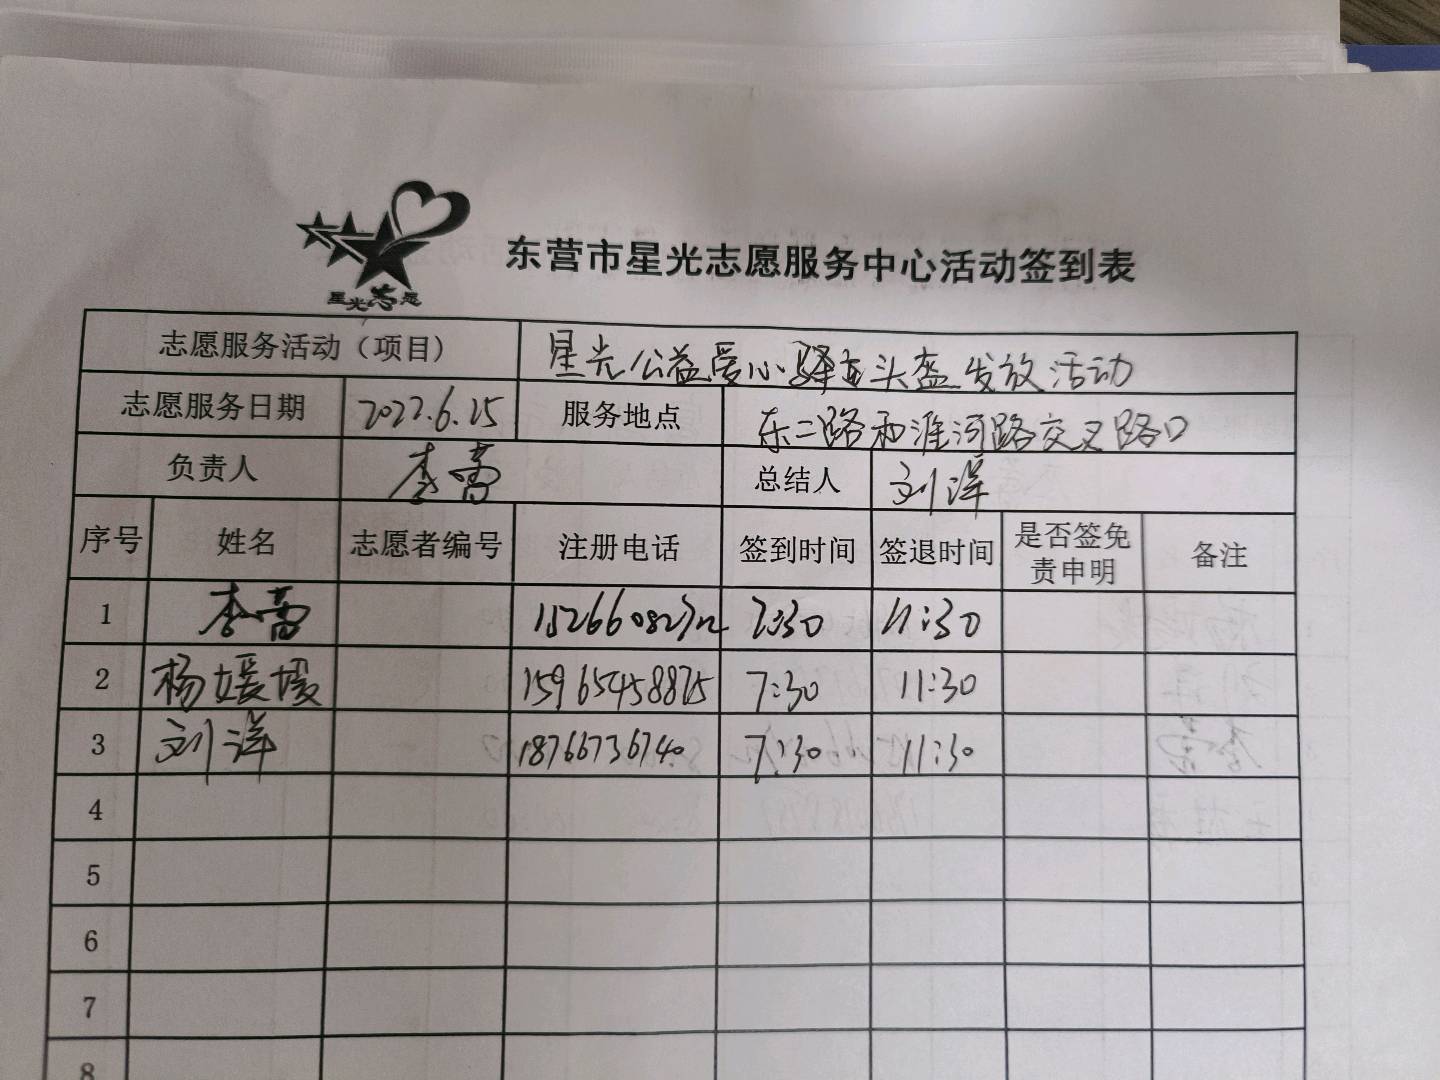 星光志愿
东营市星光志愿服务中心活动签到表
志愿服务活动（项目） 星光公益爱心驿站头盔发放活动
志愿服务日期 2022.6.25 服务地点 东二路和淮河路交叉路口
负责人 李 总结人 刘洋
序号 姓名 志愿者编号 注册电话 签到时间 签退时间 是否签免责申明 备注
1 李 7:30 11:30
2 杨媛媛 15965458875 7:30 11:30
3 刘洋 18766736740 7:30 11:30
4
5
6
7
8